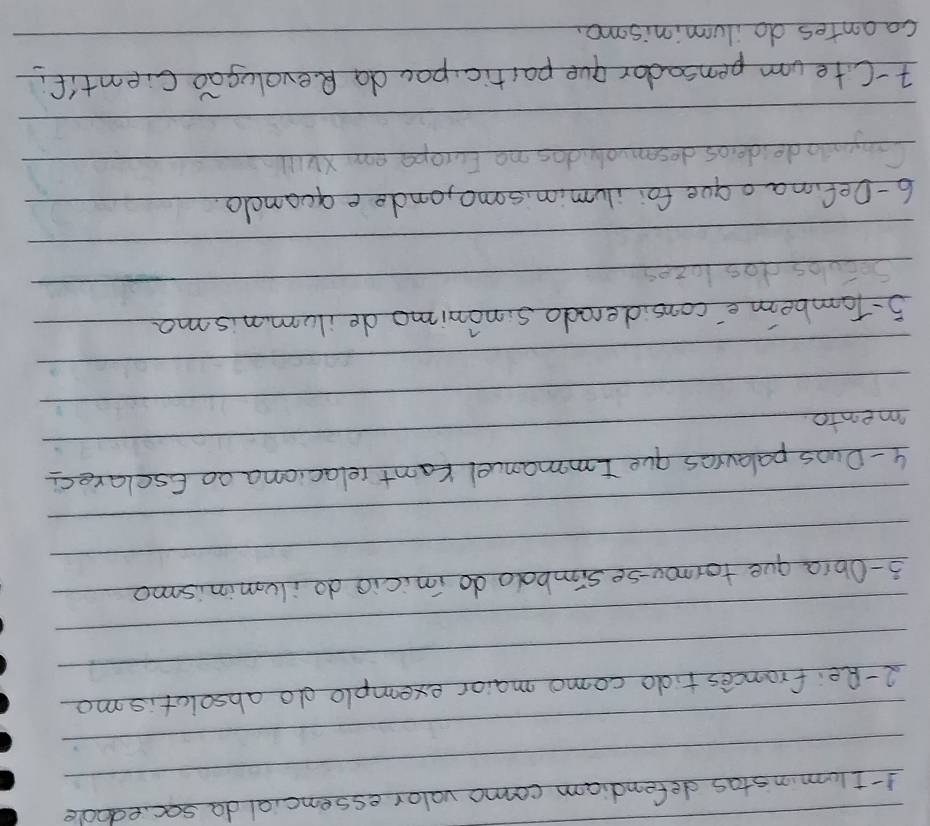 1-Iluministas defendiam como valor essencial da sociedade
2-Rei francês tido como maior exemplo do absolutismo
3-Obra que tornou-se símbolo do início do iluminismo
4-Duas palavras que Immanuel Kant relaciona ao Esclareci-
mento.
5-Também é considerado sinônimo de iluminismo
Séculos das luzes
6-Defina o que foi iluminismo, onde e quando.
Conjunto de ideias desenvolvidas na Europa em XVIII
7-Cite um pensador que participou da Revolução Científi-
ca antes do iluminismo.